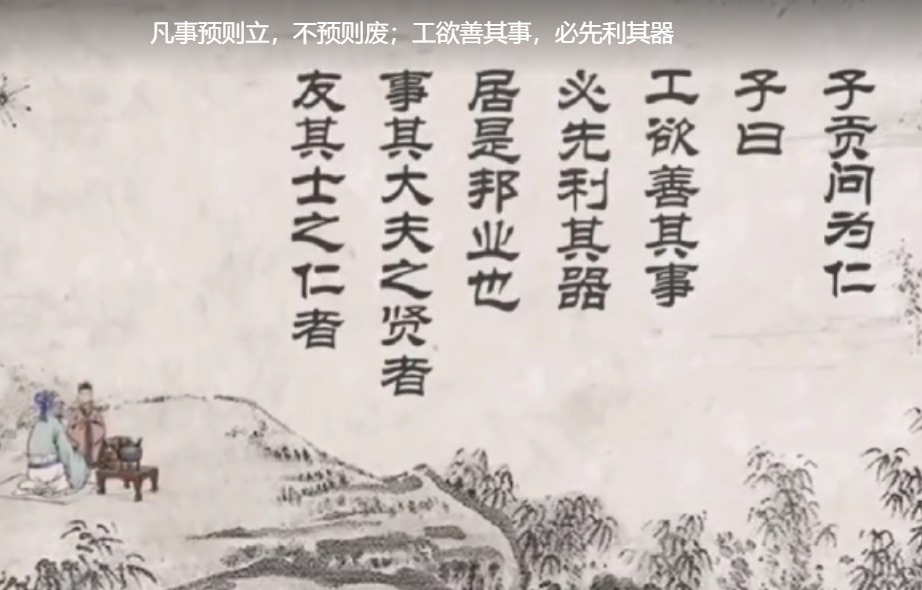 凡事预则立，不预则废；工欲善其事，必先利其器
子贡问为仁
子曰
工欲善其事
必先利其器
居是邦业也
事其大夫之贤者
友其士之仁者